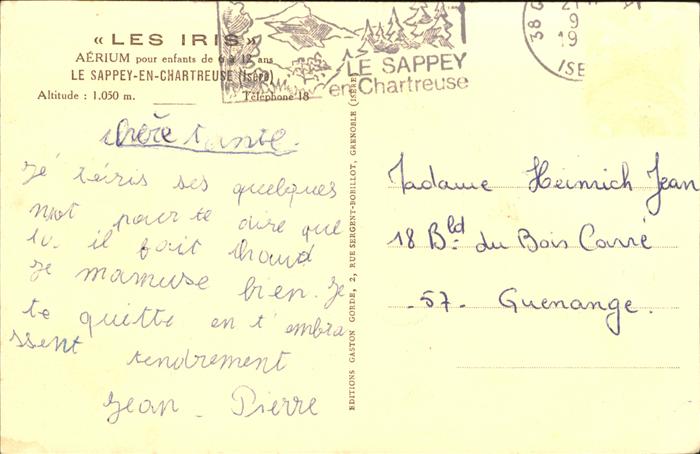 « LES IRIS »
AÉRIUM pour enfants de 6 à 12 ans
LE SAPPEY-EN-CHARTREUSE (Isère)
Altitude : 1.050 m. Téléphone 18
LE SAPPEY
en Chartreuse
38 G
21
9
19
ISE
chère tante.
Jé téiris ses quelques
mot pour te dire que
la il fait chaud
je mamuse bien. Je
te quitte en t'embra
ssent tendrement
Jean - Pierre
EDITIONS GASTON GORDE, 2, RUE SERGENT-BOBILLOT, GRENOBLE (ISÈRE)
Madame Heinrich Jean
18 Bld du Bois Carré
-57- Guenange.